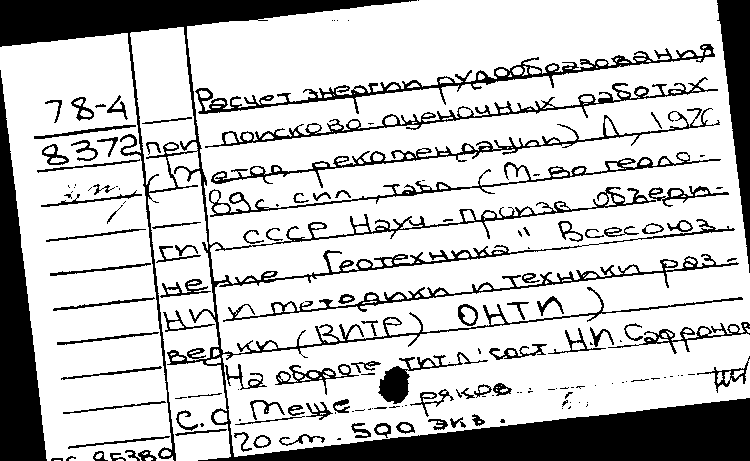 78-4
8372
Расчет энергии рудообразования
при поисково-оценочных работах
(Метод рекомендации) Л, 197
89с. с ил., табл (М-во геоло-
гии СССР Науч-произв объеди-
нение „Геотехника" Всесоюз.
НИИ методики и техники раз-
ведки (ВИТР) ОНТИ)
На обороте тит.л: сост. Н.И. Сафронов
С.С. Меще ряков.
20 cm. 500 экз.
85380